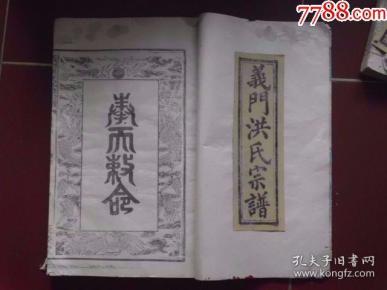 7788.com
義門洪氏宗譜
奉天敕命
孔夫子旧书网
www.kongfz.com